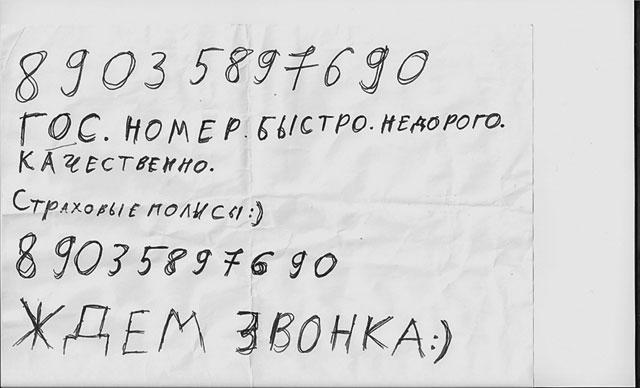 89035897690
ГОС. НОМЕР. БЫСТРО. НЕДОРОГО.
КАЧЕСТВЕННО.
СТРАХОВЫЕ ПОЛИСЫ:)
89035897690
ЖДЕМ ЗВОНКА:)